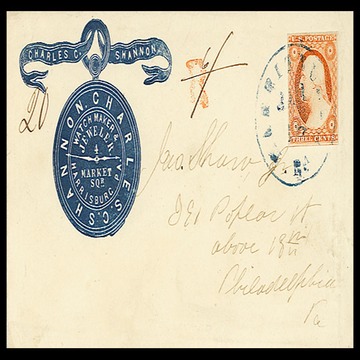 CHARLES C. SHANNON
CHARLES C. SHANNON
WATCH MAKER &
JEWELER
MARKET
SQR
HARRISBURG PA
20
U.S. POSTAGE
THREE CENTS
Jas Shaw Jr
891 Poplar St
above 18th
Philadelphia
Pa